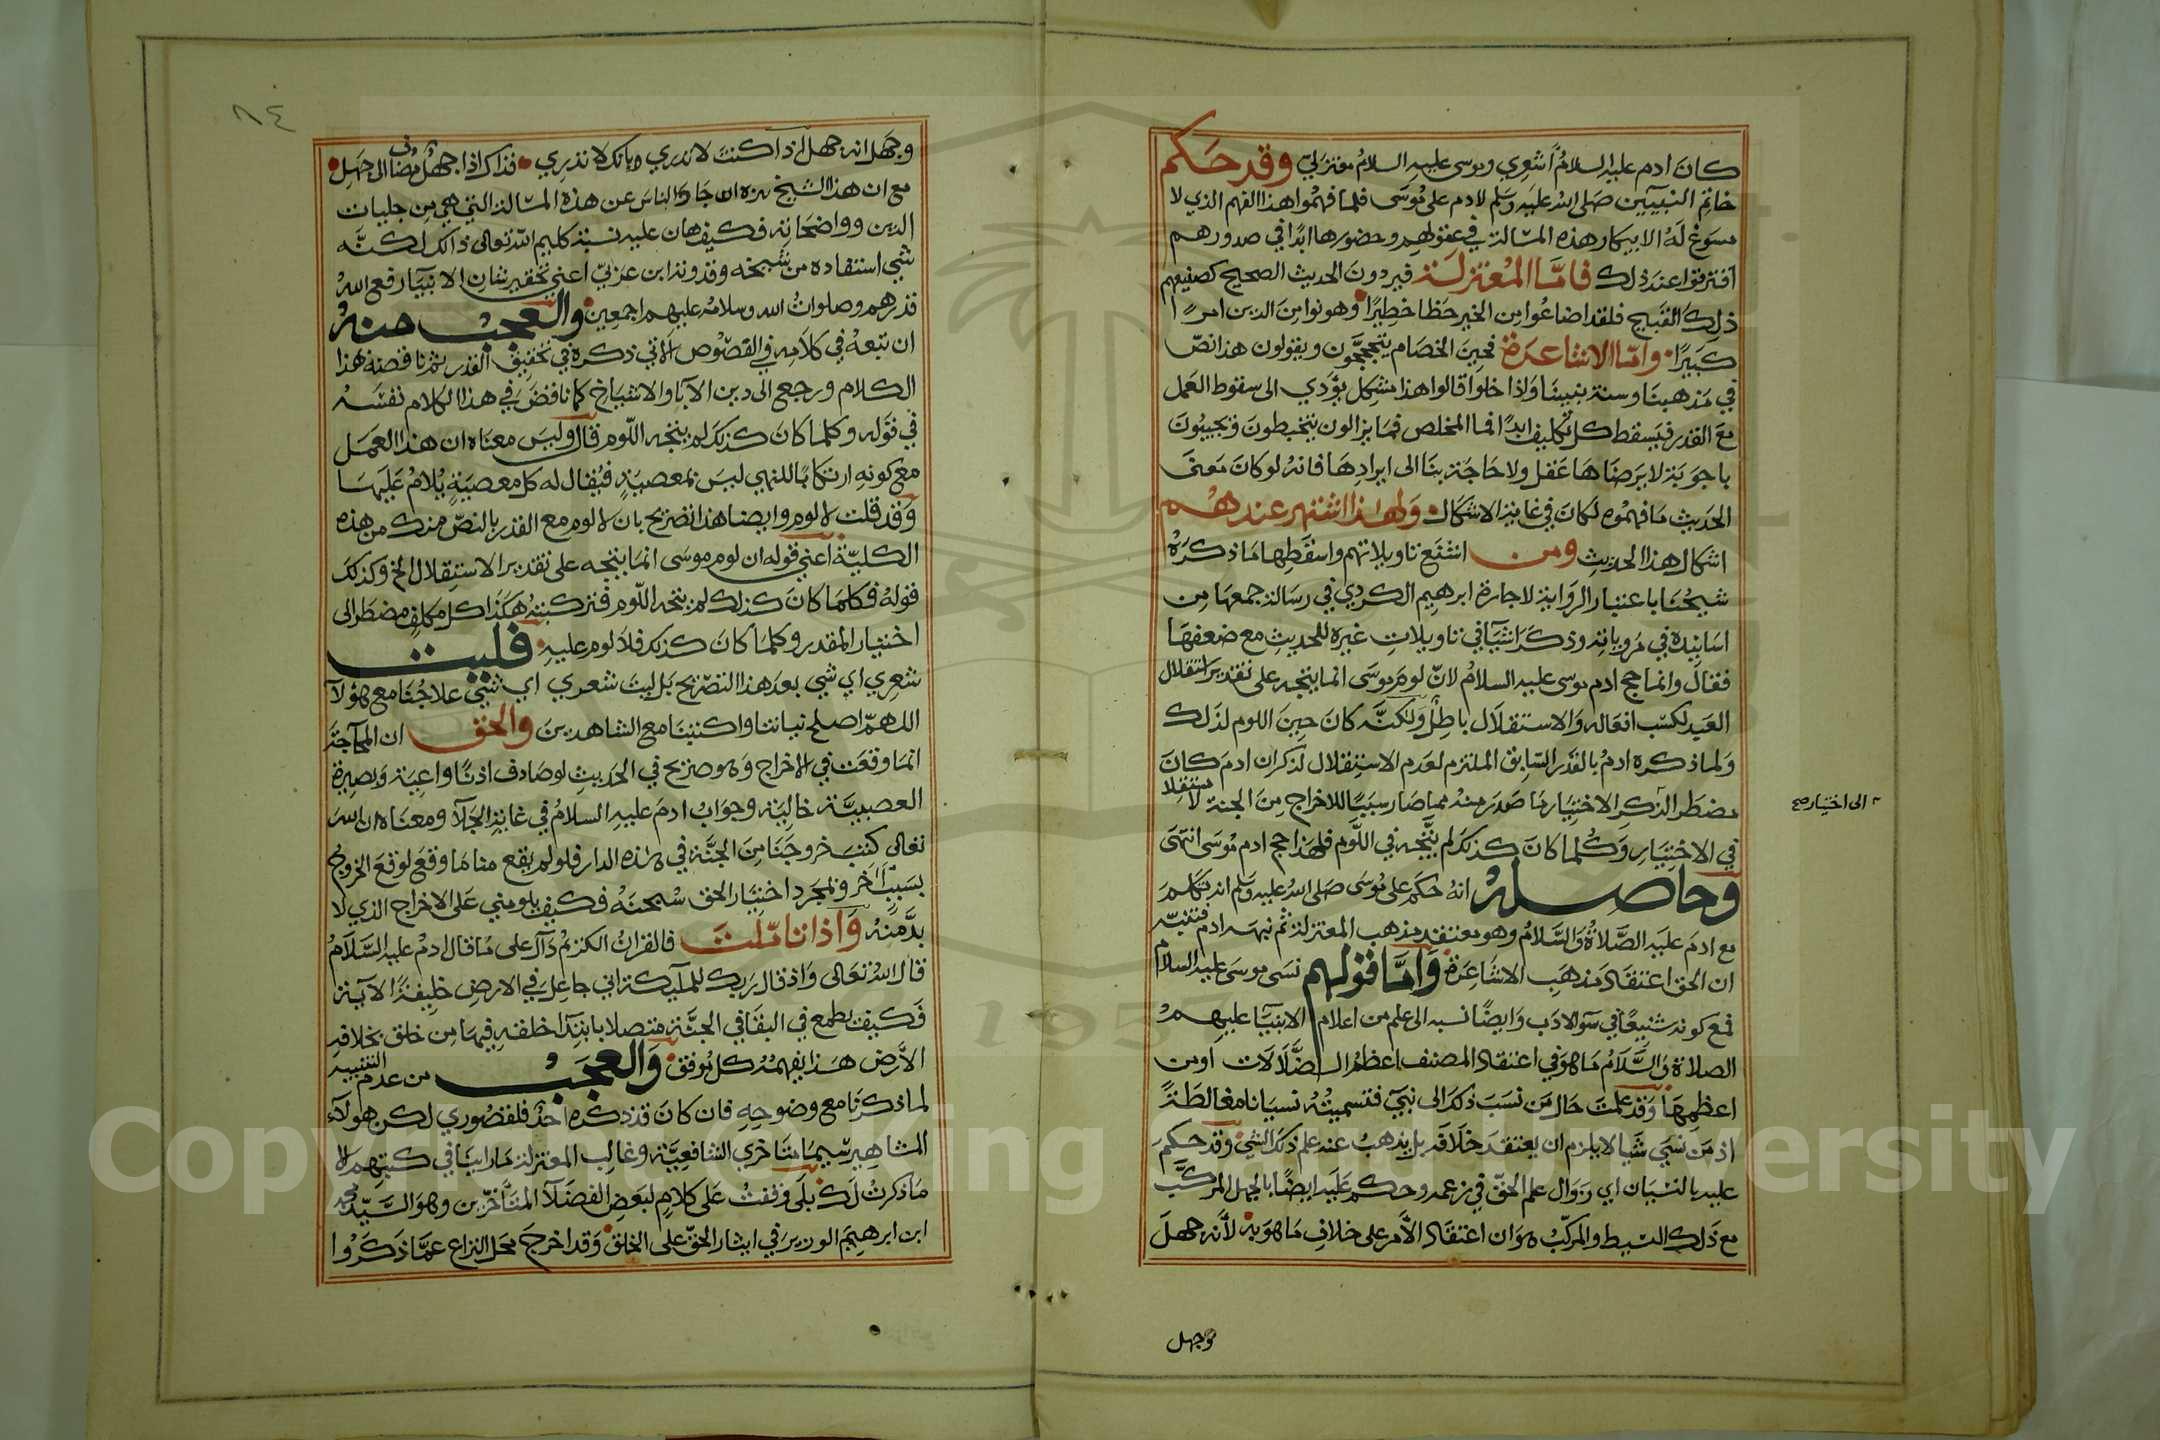 كان ادم عليه السلام أشعري وموسى عليه السلام معتزلي وقد حكم
خاتم النبيين صلى الله عليه وسلم لادم على موسى فلما فهموا هذا الفهم الذي لا
مسوغ له الا ابتكار هذه المسالة في عقولهم وحضورها ابدا في صدورهم
افترقوا عند ذلك فامّا المعتزلة فيردون الحديث الصحيح كصنيعهم
ذلك القبيح فلقد اضاعوا من الخير حظا خطيرا وهونوا من الدين امرًا
كبيرا وامّا الاشاعرة فحين الخصام يتبجحون ويقولون هذا نصّ
في مذهبنا وسنة نبينا واذا خلوا قالوا هذا مشكل يؤدي الى سقوط العمل
مع القدر فيسقط كل تكليف ابدًا فما المخلص فما يزالون يتخبطون ويجيبون
باجوبة لا يرضاها عقل ولا حاجة بنا الى ايرادها فانه لو كان معنى
الحديث ما فهموه لكان في غاية الاشكال ولهذا اشتهر عندهم
اشكال هذا الحديث ومن اشنع تاويلاتهم واسقطها ما ذكره
شيخنا باعتبار الرواية لاجازة ابرهيم الكردي في رسالة جمعها من
اسانيده في مروياته وذكر اشيآ في تاويلات غيره للحديث مع ضعفها
فقال وانما حج ادم موسى عليه السلام لانّ لوم موسى انما يتجه على تقدير استقلال
العبد لكسب افعاله والاستقلال باطل ولكنّه كان حين اللوم لذلك
ولما ذكره ادم بالقدر السابق الملتزم لعدم الاستقلال لذكر ان ادم كان
مضطر الذكر الاختيار ما صدر منه مما صار سببًا للاخراج من الجنة لا مستقلا
الى اختياره صح
في الاختيار وكلما كان كذلك لم يتجه في اللّوم فلهذا حج ادم موسى انتهى
وحاصله انه حكم على موسى صلى الله عليه وسلم انه تكلم
مع ادم عليه الصّلاة والسّلام وهو معتقد مذهب المعتزلة ثم نبهه ادم فتنبّه
ان الحق اعتقاد مذهب الاشاعرة وامّا قولهم نسى موسى عليه السلام
فمع كونه شنيعًا في سوء الادب وايضا نسبه الى علم من اعلام الانبيآ عليهم
الصلاة والسّلام ما هو في اعتقاد المصنف اعظم الضّلالات او من
اعظمها وقد علمت حال من نسب ذلك الى نبيّ فتسميته نسيانا مغالطة
اذ من نسي شيا لا يلزم ان يعتقد خلافه بل يذهب عنه علم ذلك الشي وقد حكم
عليه بالنسيان اي زوال علم الحق في زعمه وحكم عليه ايضًا بالجهل المركّب
مع ذلك البسيط والمركّب هو ان اعتقاد الأمر على خلاف ما هو به لأنه جهل
وجهل
٨٤
وجهل انه جهل اذا كنت لا تدري وبانك لا تدري فذاك اذا جهل مضاف الى جهل
مع ان هذا الشيخ الناس عن هذه المسالة التي هي من جليات
الدين وواضحاته فكيف هان عليه نسبة كليم الله تعالى ذالك لكنّه
شي استفاده من شيخه وقدوته ابن عربيّ اعني تحقير شان الانبيآ رفع الله
قدرهم وصلوات الله وسلامه عليهم اجمعين والعجب منه
ان تبعه في كلامه في الفصوص الاتي ذكره في تحقيق القدر ثم ناقضه هذا
الكلام ورجع الى دين الآبا والاشياخ كما ناقض في هذا الكلام نفسه
في قوله وكلما كان كذلك لم يتجه اللّوم قال وليس معناه ان هذا العمل
مع كونه ارتكابًا للنهي ليس بمعصية فيقال له كل معصية يلام عليها
وقد قلت لا لوم وايضا هذا تصريح بان لا لوم مع القدر بالنصّ منك من هذه
الكليّة اعني قوله ان لوم موسى انما يتجه على تقدير الاستقلال الخ وكذلك
قوله فكلما كان كذلك لم يتجه اللّوم فتركبته هكذا كل مكلف مضطر الى
اختيار المقدر وكلما كان كذلك فلا لوم عليه فليت
شعري اي شي بعد هذا التصريح بل ليت شعري اي شي علاجنا مع هؤلآ
اللهمّ اصلح نياتنا واكتبنا مع الشاهدين والحق ان المحآجّة
انما وقعت في الاخراج وهو صريح في الحديث لو صادف اذنًا واعية وبصيرة
العصبيّة خالية وجواب ادم عليه السلام في غاية الجلآ ومعناه ان الله
تعالى كتب خروجنا من الجنّة في هذه الدار فلو لم يقع منا ما وقع لوقع الخروج
بسبب آخر ولمجرد اختيار الحق سبحنه فكيف يلومني على الاخراج الذي لا
بدّ منه واذا تامّلت فالقران الكريم دآل على ما قال ادم عليه السّلام
قال الله تعالى واذ قال ربك للملآيكة اني جاعل في الارض خليفة الآية
فكيف يطمع في البقا في الجنّة متصلا بابتدآ خلقه فيها من خلق بخلافه
الأرض هذا يفهمه كل موفق والعجب من عدم التنبيه
لما ذكرنا مع وضوحه فان كان قد ذكره احد فلقصوري لكن هولآء
المشاهير سيما متاخري الشافعيّة وغالب المعتزلة ما راينا في كتبهم الا
ما ذكرت لك بلى وقفت على كلام لبعض الفضلآ المتأخّرين وهو السّيّد محمد
ابن ابرهيم الوزير في ايثار الحقّ على الخلق وقد اخرج محل النزاع عمّا ذكروا
Copyright © King Saud University
1957